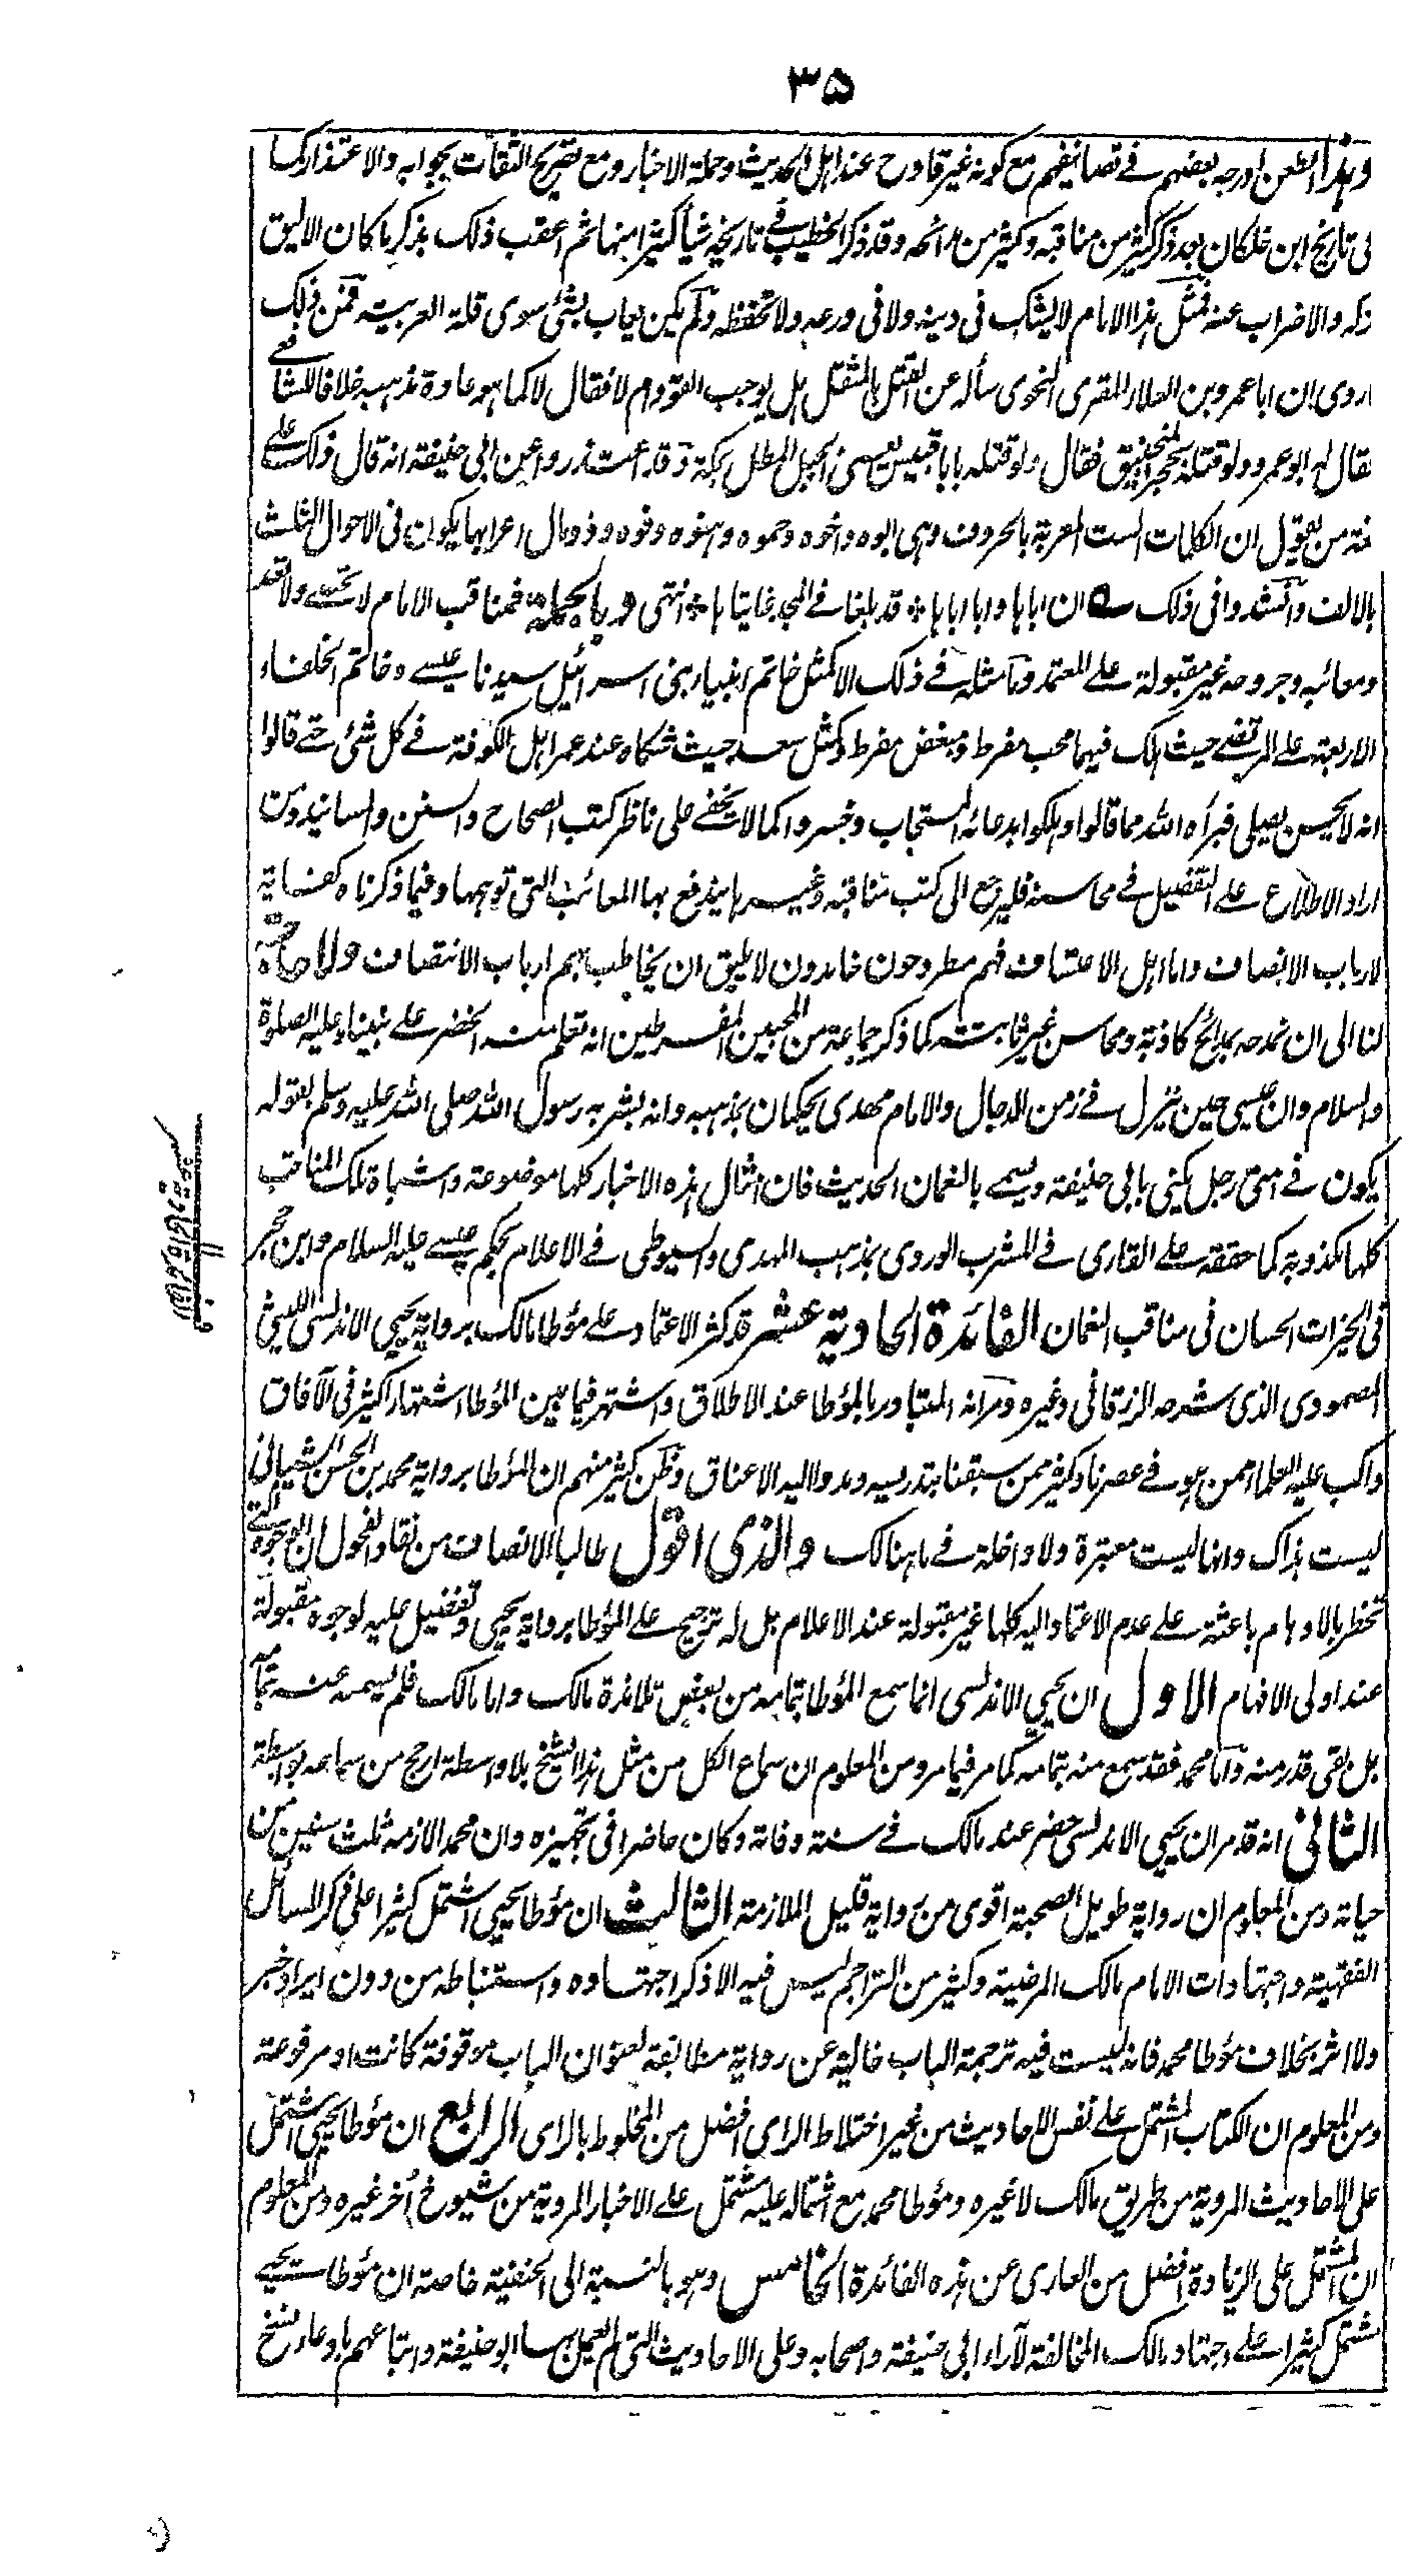 ٣٥
وهذا الطعن ادرجه بعضهم في تصانيفهم مع كونه غير قادح عند اهل الحديث وحملة الاخبار ومع تصريح الثقات بجوابه والاعتذار كما
في تاريخ ابن خلكان بعد ذكر كثير من مناقبه وكثير من مدائحه وقد ذكر الخطيب في تاريخه شيأ كثيرا منها ثم اعقب ذلك بذكر ما كان الاليق
تركه والاضراب عنه فمثل هذا الامام لايشك في دينه ولا في ورعه ولا تحفظه ولم يكن يعاب بشئ سوى قلة العربية فمن ذلك
ما روى ان ابا عمرو بن العلاء المقرى النحوى سأله عن القتل بالمثقل هل يوجب القود ام لا فقال لا كما هو عادة مذهبه خلافا للشافعي
فقال له ابو عمرو ولو قتله بحجر المنجنيق فقال ولو قتله بابا قبيس يعنى الجبل المطل بمكة وقد اعتذروا عن ابى حنيفة انه قال ذلك على
لغة من يقول ان الكلمات الست المعربة بالحروف وهى ابوه واخوه وحموه وهنوه وفوه وذو مال اعرابها يكون فى الاحوال الثلث
بالالف وانشدوا فى ذلك ان اباها وابا اباها * قد بلغا في المجد غايتاها * انتهى وبالجملة فمناقب الامام لا تحصى ولا تعد
ومعائبه وجروحه غير مقبولة على المعتمد وما مثله في ذلك الا كمثل خاتم انبياء بنى اسرائيل سيدنا عيسى وخاتم الخلفاء
الاربعة على المرتضى حيث هلك فيهما محب مفرط ومبغض مفرط وكمثل سعد حيث شكاه عند عمر اهل الكوفة في كل شئ حتى قالوا
انه لا يحسن يصلى فبرأه الله مما قالوا وهلكوا بدعائه المستجاب وخسروا كما لا يخفى على ناظر كتب الصحاح والسنن والمسانيد ومن
اراد الاطلاع على التفصيل في محاسنه فليرجع الى كتب مناقبه وغيرها يندفع بها المعائب التى توهمها وفيما ذكرناه كفاية
لارباب الانصاف واما اهل الاعتساف فهم مطرودون خامدون لا يليق ان يخاطب بهم ارباب الانتصاف ولا حاجة
لنا الى ان نمدحه بمدائح كاذبة ومحاسن غير ثابتة كما ذكر جماعة من المحبين المفرطين انه تعلم منه الخضر على نبينا وعليه الصلوة
والسلام وان عيسى حين ينزل في زمن الدجال والامام مهدى يحكمان بمذهبه وانه بشر به رسول الله صلى الله عليه وسلم بقوله
يكون في امتى رجل يكنى بابى حنيفة ويسمى بالنعمان الحديث فان امثال هذه الاخبار كلها موضوعة واشباة تلك المناقب
كلها مكذوبة كما حققه على القارى في المشرب الوردى بمذهب المهدى والسيوطى في الاعلام بحكم عيسى عليه السلام وابن حجر
فى الخيرات الحسان فى مناقب النعمان الفائدة الحادية عشر قد كثر الاعتماد على مؤطا مالك برواية يحيى الاندلسى الليثى
المصمودى الذى شرحه الزرقانى وغيره ومر انه المتبادر بالمؤطا عند الاطلاق واشتهر فيما بين المؤطا اشتهارا كثيرا فى الآفاق
واكب عليه العلماء ممن هو في عصرنا وكثير ممن سبقنا بتدريسه ومدوا اليه الاعناق وظن كثير منهم ان المؤطا برواية محمد بن الحسن الشيبانى
ليست بذاك وانها ليست معتبرة ولا داخلة في ما هنالك والذى اقول طالبا الانصاف من نقاد الفحول ان الوجوه التى
تخطر بالاوهام باعثة على عدم الاعتماد اليه كلها غير مقبولة عند الاعلام بل له ترجيح على المؤطا برواية يحيى وتفضيل عليه لوجوه مقبولة
عند اولى الافهام الاول ان يحيى الاندلسى انما سمع المؤطا بتمامه من بعض تلامذة مالك واما مالك فلم يسمعه عنه بتمامه
بل بقى قدر منه واما محمد فقد سمع منه بتمامه كما مر فيما مر ومن المعلوم ان سماع الكل من مثل هذا الشيخ بلا واسطة ارجح من سماعه بواسطة
الثانى انه قد مر ان يحيى الاندلسى حضر عند مالك في سنة وفاته وكان حاضرا فى تجهيزه وان محمد الازمه ثلث سنين من
حياته ومن المعلوم ان رواية طويل الصحبة اقوى من رواية قليل الملازمة الثالث ان مؤطا يحيى اشتمل كثيرا على ذكر المسائل
الفقهية واجتهادات الامام مالك المرضية وكثير من التراجم ليس فيه الا ذكر اجتهاده واستنباطه من دون ايراد خبر
ولا اثر بخلاف مؤطا محمد فانه ليست فيه ترجمة الباب خالية عن رواية مطابقة لعنوان الباب موقوفة كانت او مرفوعة
ومن المعلوم ان الكتاب المشتمل على نفس الاحاديث من غير اختلاط الراى افضل من المخلوط بالراى الرابع ان مؤطا يحيى اشتمل
على الاحاديث المروية من طريق مالك لا غيره ومؤطا محمد مع اشتماله عليه مشتمل على الاخبار المروية من شيوخ اُخر غيره ومن المعلوم
ان المشتمل على الزيادة افضل من العارى عن هذه الفائدة الخامس وهو بالنسبة الى الحنفية خاصة ان مؤطا يحيى
مشتمل كثيرا على اجتهاد مالك المخالفة لآراء ابى حنيفة واصحابه وعلى الاحاديث التى لم يعمل بها ابو حنيفة واتباعهم بادعاء نسخ